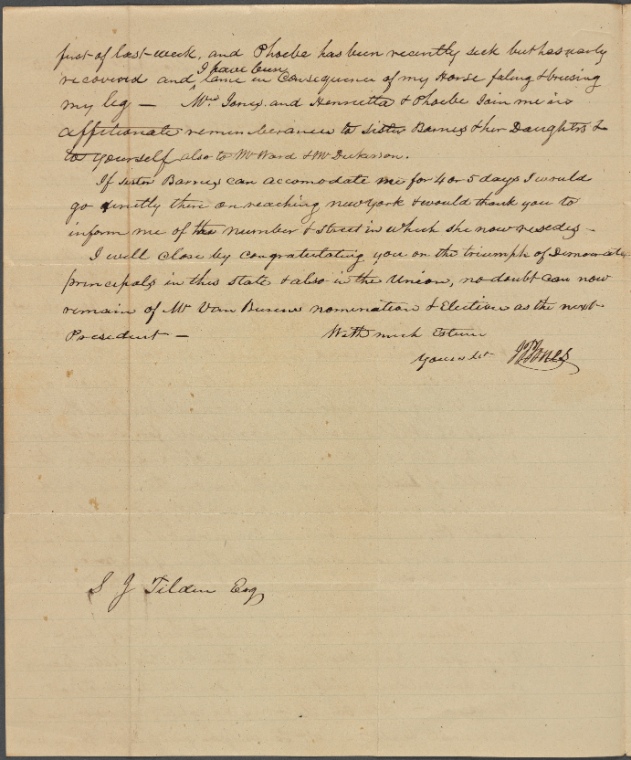 first of last week, and Phoebe has been recently sick but has nearly
I have been
recovered and lame in Consequence of my Horse faling & brusing
my leg — Mrs Jones and Henrietta & Phoebe Join me in
affitionate rememberances to Sister Barnes & her Daughters &
to yourself also to Mr Ward & Mr Dickasson.
If Sister Barnes can accomodate me for 4 or 5 days I would
go directly there on reaching new York & would thank you to
inform me of the number & Street in which she now resedes —
I will close by congratulating you on the triumph of Democratic
principals in this State & also in the Union, no doubt can now
remain of Mr Van Burens nomination & Election as the next
President — With much Esteem
Yours &c Jones
S J Tilden Esq,